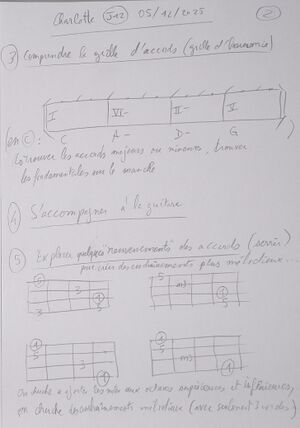 Charlotte J12 05/12/2025 2
3 Comprendre la grille d'accords (grille d'harmonie)
I VI- II- V
(en C): C A- D- G
retrouver les accords majeurs ou mineurs, trouver
les fondamentales sur le manche
4 S'accompagner à la guitare
5 Explorer quelques "renversements" des accords (serrés)
pour créer des enchaînements plus mélodieux...
3 1 5 3
5 m3 1
1 5 3 1
1 5 m3 1
On cherche à ajouter les notes aux octaves supérieures et inférieures,
on cherche des enchaînements mélodieux (avec seulement 3 cordes)